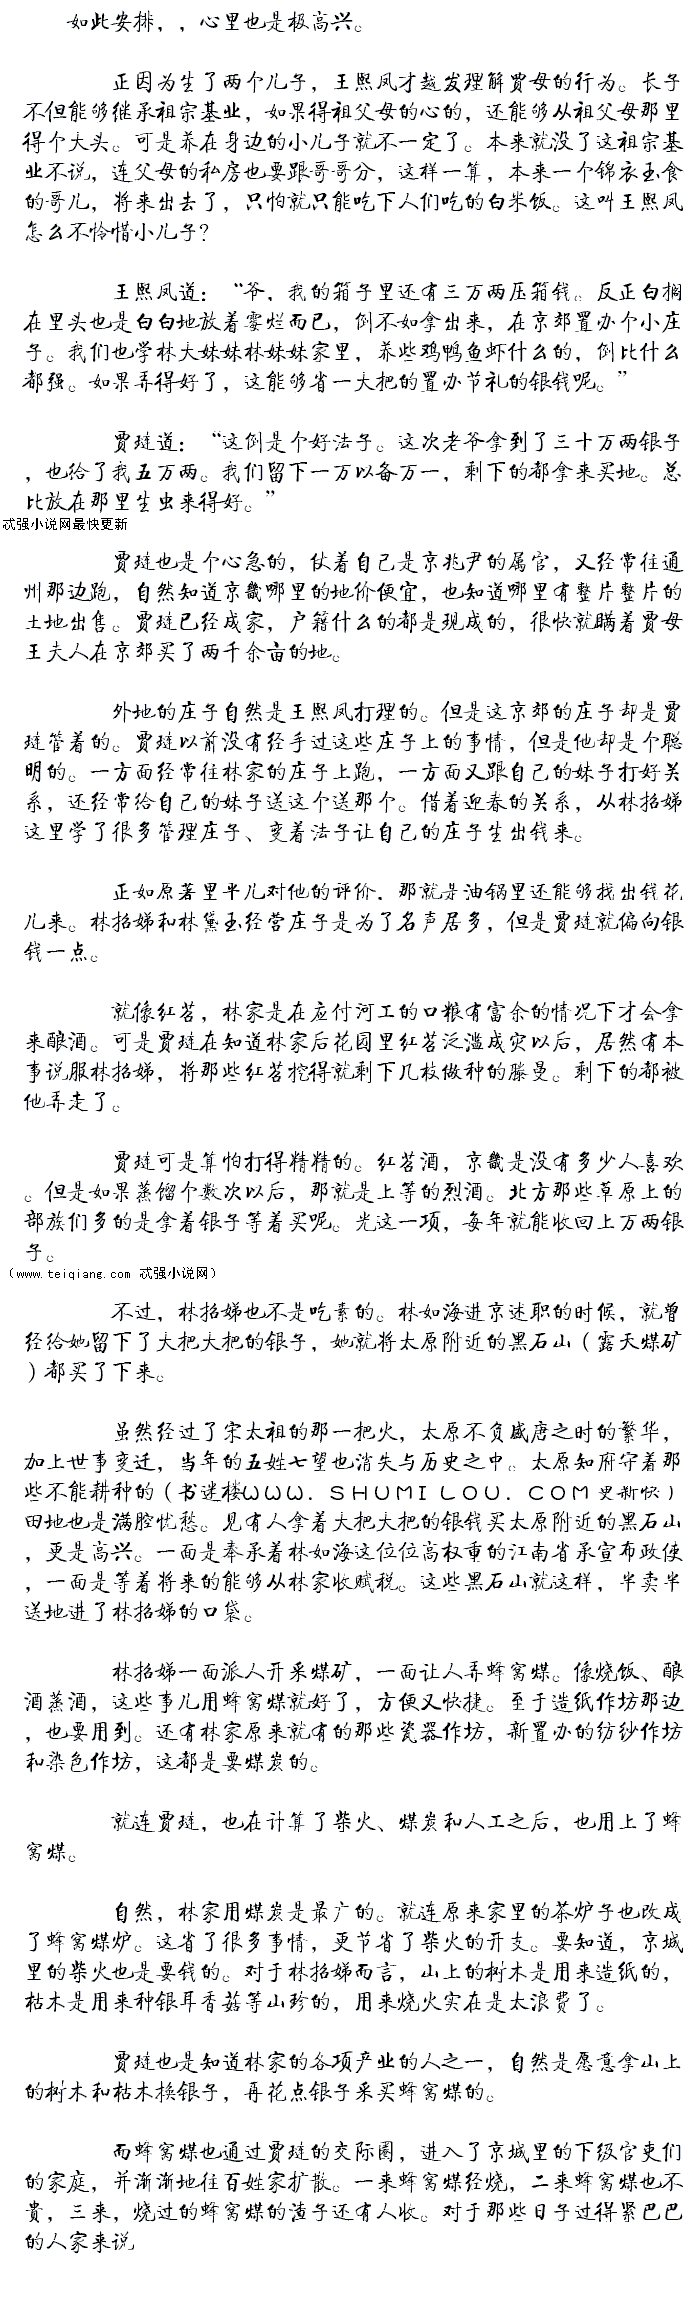 如此安排，，心里也是极高兴。
正因为生了两个儿子，王熙凤才越发理解贾母的行为。长子
不但能够继承祖宗基业，如果得祖父母的心的，还能够从祖父母那里
得个大头。可是养在身边的小儿子就不一定了。本来就没了这祖宗基
业不说，连父母的私房也要跟哥哥分，这样一算，本来一个锦衣玉食
的哥儿，将来出去了，只怕就只能吃下人们吃的白米饭。这叫王熙凤
怎么不怜惜小儿子？
王熙凤道：“爷，我的箱子里还有三万两压箱钱。反正白搁
在里头也是白白地放着霉烂而已，倒不如拿出来，在京郊置办个小庄
子。我们也学林大妹妹林妹妹家里，养些鸡鸭鱼虾什么的，倒比什么
都强。如果弄得好了，这能够省一大把的置办节礼的银钱呢。”
贾琏道：“这倒是个好法子。这次老爷拿到了三十万两银子
，也给了我五万两。我们留下一万以备万一，剩下的都拿来买地。总
比放在那里生虫来得好。”
忒强小说网最快更新
贾琏也是个心急的，仗着自己是京兆尹的属官，又经常往通
州那边跑，自然知道京畿哪里的地价便宜，也知道哪里有整片整片的
土地出售。贾琏已经成家，户籍什么的都是现成的，很快就瞒着贾母
王夫人在京郊买了两千余亩的地。
外地的庄子自然是王熙凤打理的。但是这京郊的庄子却是贾
琏管着的。贾琏以前没有经手过这些庄子上的事情，但是他却是个聪
明的。一方面经常往林家的庄子上跑，一方面又跟自己的妹子打好关
系，还经常给自己的妹子送这个送那个。借着迎春的关系，从林招娣
这里学了很多管理庄子、变着法子让自己的庄子生出钱来。
正如原著里平儿对他的评价，那就是油锅里还能够找出钱花
儿来。林招娣和林黛玉经营庄子是为了名声居多，但是贾琏就偏向银
钱一点。
就像红苕，林家是在应付河工的口粮有富余的情况下才会拿
来酿酒。可是贾琏在知道林家后花园里红苕泛滥成灾以后，居然有本
事说服林招娣，将那些红苕挖得就剩下几枝做种的藤曼。剩下的都被
他弄走了。
贾琏可是算怕打得精精的。红苕酒，京畿是没有多少人喜欢
。但是如果蒸馏个数次以后，那就是上等的烈酒。北方那些草原上的
部族们多的是拿着银子等着买呢。光这一项，每年就能收回上万两银
子。
（www.teiqiang.com 忒强小说网）
不过，林招娣也不是吃素的。林如海进京述职的时候，就曾
经给她留下了大把大把的银子，她就将太原附近的黑石山（露天煤矿
）都买了下来。
虽然经过了宋太祖的那一把火，太原不负盛唐之时的繁华，
加上世事变迁，当年的五姓七望也消失与历史之中。太原知府守着那
些不能耕种的（书迷楼ＷＷＷ．ＳＨＵＭＩＬＯＵ．ＣＯＭ更新快）
田地也是满腔忧愁。见有人拿着大把大把的银钱买太原附近的黑石山
，更是高兴。一面是奉承着林如海这位位高权重的江南省承宣布政使
，一面是等着将来的能够从林家收赋税。这些黑石山就这样，半卖半
送地进了林招娣的口袋。
林招娣一面派人开采煤矿，一面让人弄蜂窝煤。像烧饭、酿
酒蒸酒，这些事儿用蜂窝煤就好了，方便又快捷。至于造纸作坊那边
，也要用到。还有林家原来就有的那些瓷器作坊，新置办的纺纱作坊
和染色作坊，这都是要煤炭的。
就连贾琏，也在计算了柴火、煤炭和人工之后，也用上了蜂
窝煤。
自然，林家用煤炭是最广的。就连原来家里的茶炉子也改成
了蜂窝煤炉。这省了很多事情，更节省了柴火的开支。要知道，京城
里的柴火也是要钱的。对于林招娣而言，山上的树木是用来造纸的，
枯木是用来种银耳香菇等山珍的，用来烧火实在是太浪费了。
贾琏也是知道林家的各项产业的人之一，自然是愿意拿山上
的树木和枯木换银子，再花点银子采买蜂窝煤的。
而蜂窝煤也通过贾琏的交际圈，进入了京城里的下级官吏们
的家庭，并渐渐地往百姓家扩散。一来蜂窝煤经烧，二来蜂窝煤也不
贵，三来，烧过的蜂窝煤的渣子还有人收。对于那些日子过得紧巴巴
的人家来说